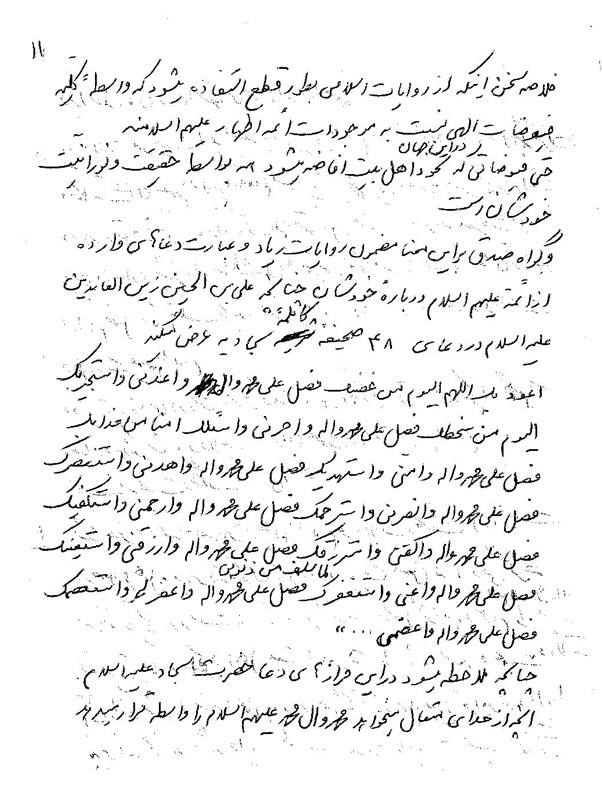 ۱۱
خلاصه سخن اینکه از روایات اسلامی بطور قطع استفاده میشود که واسطهٔ کلیه
فیوضات الهی نسبت به موجودات ائمه اطهار علیهم السلامند
در این جهان
حتی فیوضاتی که بخود اهل بیت افاضه میشود به بواسطه حقیقت و نورانیت
خودشان است
و گواه صدق براین معنا مضمون روایات زیاد و عبارت دعاهای وارده
از ائمة علیهم السلام درباره خودشان چنانکه علی بن الحسین زین العابدین
علیه السلام در دعای ۴۸ صحیفه کاملهٔ سجادیه عرض میکند
اعوذ بك اللهم الیوم من غضبك فصل علی محمد واله واعذنی واستجیربك
الیوم من سخطك فصل علی محمد واله واجرنی واسئلك امنا من عذابك
فصل علی محمد واله وامنی واستهدیك فصل علی محمد واله واهدنی واستنصرك
فصل علی محمد واله وانصرنی واسترحمك فصل علی محمد واله وارحمنی واستكفیك
فصل علی محمد واله واكفنی واسترزقك فصل علی محمد واله وارزقنی واستعینك
لما سلف من ذنوبی
فصل علی محمد واله واعنی واستغفرك فصل علی محمد واله واغفرلی واستعصمك
فصل علی محمد واله واعصمنی ... »
چنانچه ملاحظه میشود در این فرازهای دعا حضرت سجاد علیه السلام
آنچه از خدای متعال میخواهد محمد وآل محمد علیهم السلام را واسطه قرار میدهد